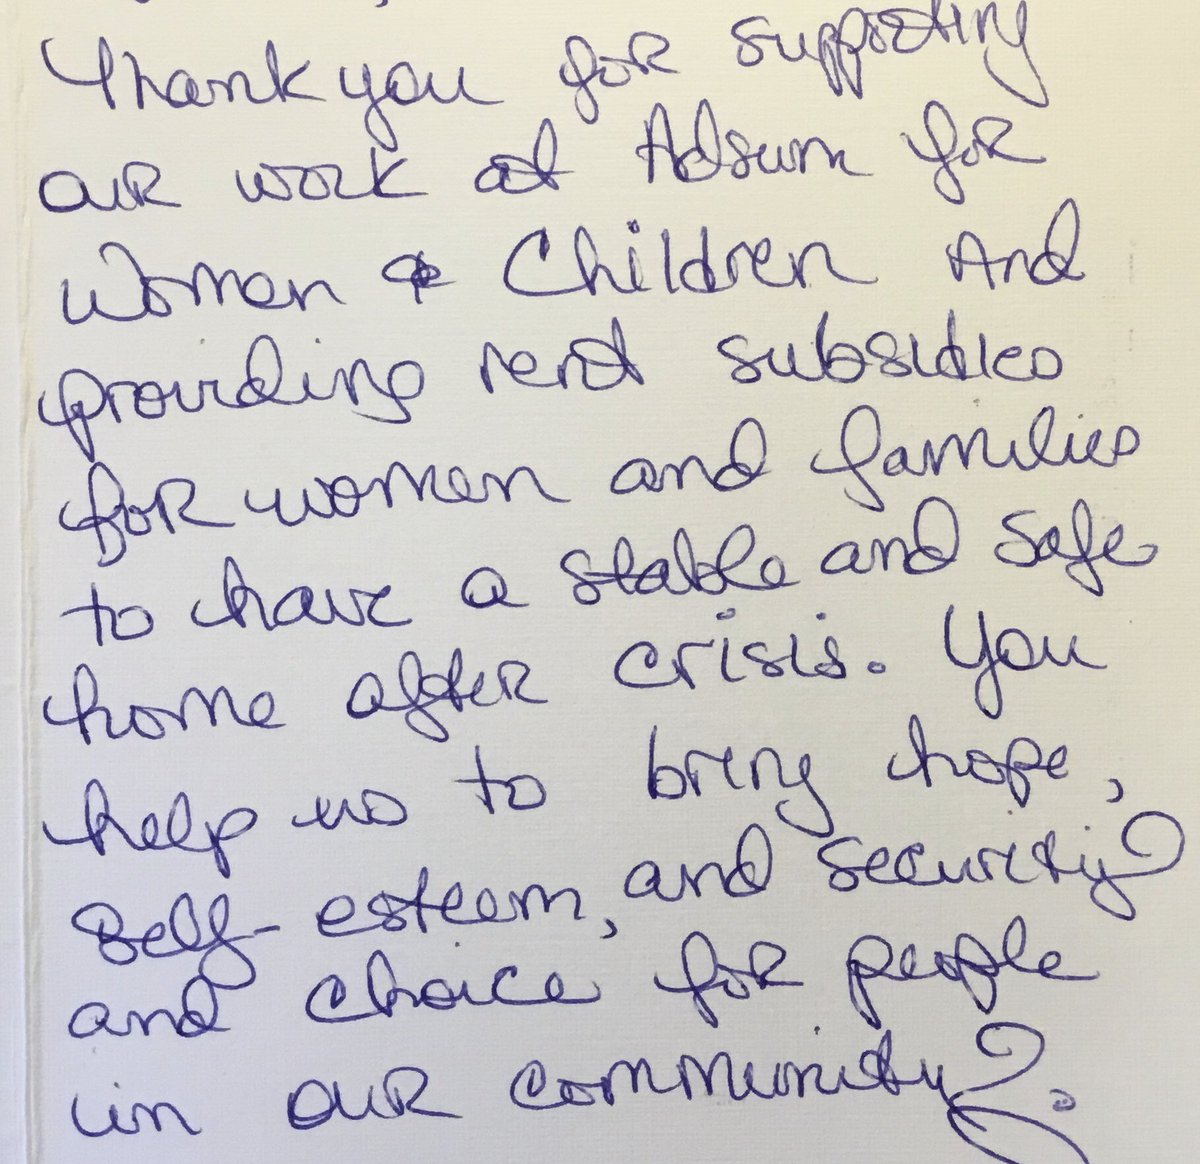 Thank you for supporting
our work at Adsum for
Women & Children And
providing rent subsidies
for women and families
to have a stable and safe
home after crisis. You
help us to bring hope,
self-esteem, and security
and choice for people
in our community.